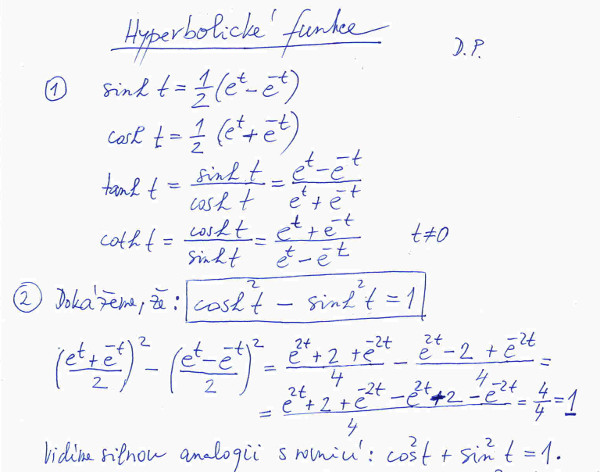 Hyperbolické funkce
D.P.
① sinh t = 1/2 (e^t - e^-t)
cosh t = 1/2 (e^t + e^-t)
tanh t = sinh t / cosh t = (e^t - e^-t) / (e^t + e^-t)
coth t = cosh t / sinh t = (e^t + e^-t) / (e^t - e^-t) t ≠ 0
② Dokážeme, že: cosh² t - sinh² t = 1
((e^t + e^-t) / 2)² - ((e^t - e^-t) / 2)² = (e^2t + 2 + e^-2t) / 4 - (e^2t - 2 + e^-2t) / 4 =
= (e^2t + 2 + e^-2t - e^2t + 2 - e^-2t) / 4 = 4/4 = 1
Vidíme silnou analogii s rovnicí: cos² t + sin² t = 1.